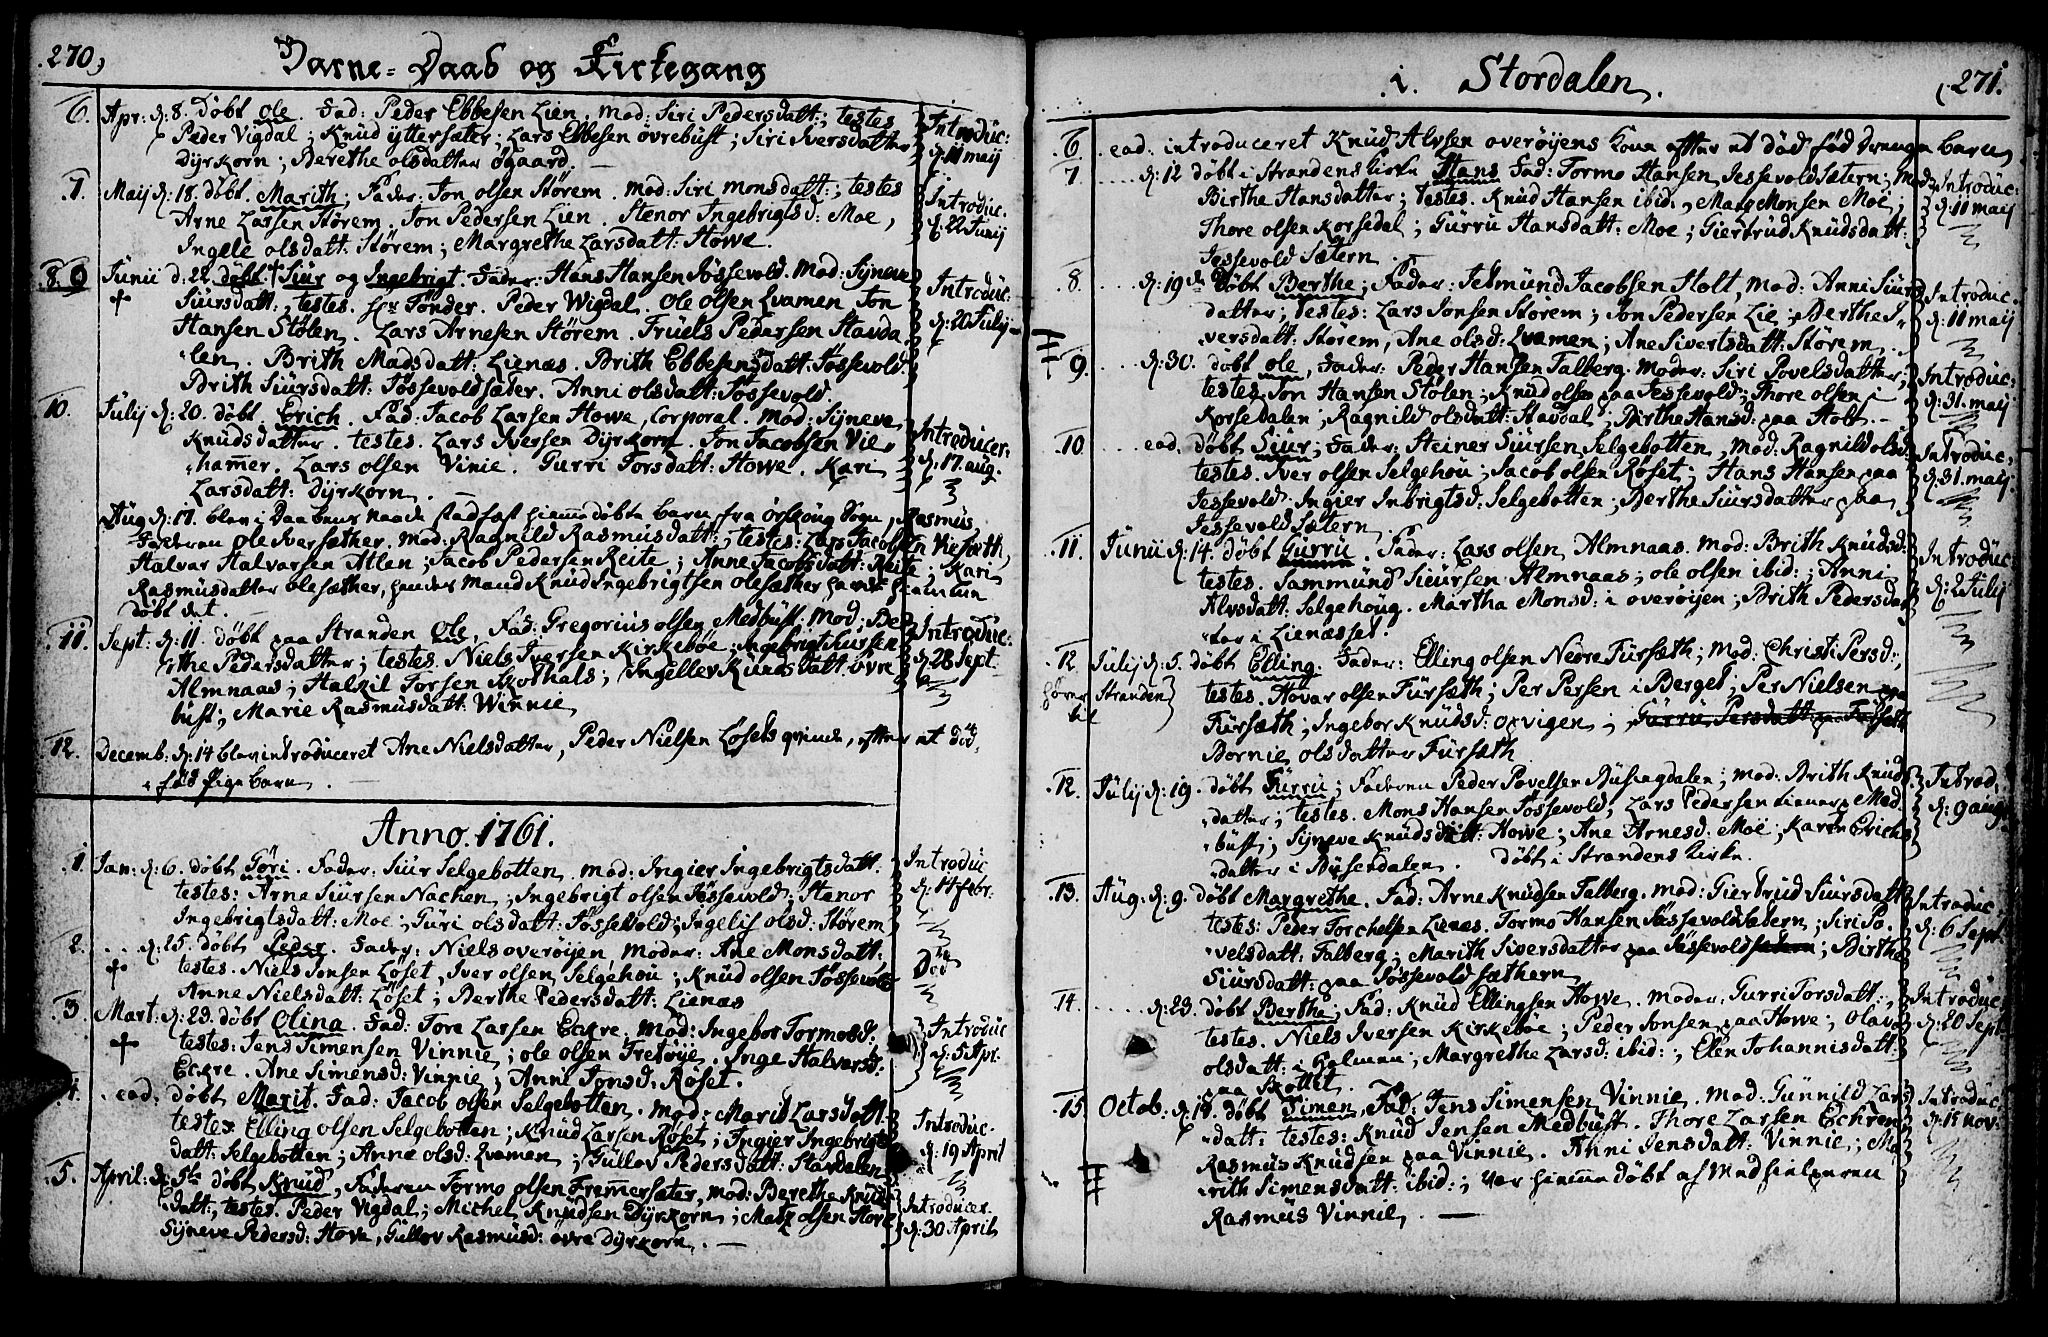 270,
Barne-Daab og Kirkegang
6. Apr: d: 8. Døbt Ole. Fad: Peder Ebbesen Lien, mod: Siri Pedersdatt:, testes
Peder Vigdal; Knud yttersæter; Lars Ebbesen øvrebust; Siri Iversdatter
Dyrkorn; Berethe olsdatter øgaard.
Introduc:
d: 11 maij
7. Maij d: 18. døbt. Marith; Fader: Jon olsen Størem. mod: Siri monsdatt:; testes
Arne Larsen Størem. Jon Pedersen Lien. Stenor Ingebrigtsd: Moe,
Ingele olsdatt: Størem; Margrethe Larsdatt: Howe.
Introduc.
d: 22 Junij
8. 9 Junii d. 22. døbt † Siur og Ingebrigt. Fader: Hans Hansen Jössevold. Mod: Syneve
† Siursdatt:, testes. Hr Tönder. Peder Wigdal. Ole olsen Qvamen Jon
Hansen Stølen. Lars Arnesen Størem. Truels Pedersen Stavda-
len. Brith Madsdatt: Lienæs. Brith Ebbesensdatt: Jössevold.
Brith Siursdatt: Jössevoldsæder. Anni olsdatt: Jössevold.
Introduc:
d: 20 Julij
10. Julij d: 20. døbt. Erich. Fad: Jacob Larsen Howe, Corporal. Mod: Syneve
Knudsdatter. testes. Lars Iversen Dyrkorn. Jon Jacobsen Vie-
hamer. Lars olsen Vinie. Gurri Torsdatt: Howe. Kari
Larsdatt: Dyrkorn.
Introducer:
d: 17. aug.
Aug d: 17. blev i Daabens naade stadfæst hiemedøbte barn fra ørskoug Sogn, Rasmus,
Faderen Ole Iversæther. mod: Ragnild Rasmusdatt:; testes: Lars Jacobsen
Halvar Halvarsen Atlen; Jacob Pedersen Reite; Anne Jacobsdatt: Reite; Kari
Rasmusdatter olesæther, hendes Mand Knud Ingebrigtsen olesæther havde hiemme
døbt det.
11. Sept: d: 11. døbt paa Stranden Ole, Fad: Gregorius olsen Medbust, Mod: Be-
rthe Pedersdatter; testes. Niels Iversen Kirkebøe; Ingebrigt Siursen
Almnaas; Halkil Torsen Skothals; Ingellev Knudsdatt: øvre
bust; Marie Rasmusdatt: Winnie
Introduc:
d: 28 Sept.
12. Decemb: d: 14 blev introduceret Ane Nielsdatter, Peder Nielsen Løsets qvinde, efter et død
født Pige barn.
Anno. 1761.
1. Jan: d: 6. døbt Göri. Fader: Siur Selgebotten, mod: Ingier Ingebrigtsdatt.
testes: Arne Siursen Nachen; Ingebrigt olsen Jössevold; Stanor
Ingebrigtsdatt: Moe; Guri olsdatt: Jössevold; Ingelis olsd: Størem
Introduc
d: 14 febr:
2. .. d: 25. døbt Peder. Fader: Niels overøijen, moder: Ane Monsdatt:
† testes. Niels Jonsen Løset, Iver olsen Selgehou; Knud olsen Jössevold
Anne Nielsdatt: Løset; Berthe Pedersdatt: Lienæs
Død
3. Mart: d: 23. døbt Olina. Fad: Tore Larsen Eckre, Mod: Ingebor Tormodsd:
† testes: Jens Simensen Vinnie; ole olsen Fretøye. Inge Halversd:
Eckre. Ane Simensd: Vinnie; Anne Jonsd: Røset.
Introduc
d: 5 Apr.
4. ead. døbt Marit. Fad: Jacob olsen Selgebotten. Mod: Marit Larsdatt.
testes: Elling olsen Selgebotten; Knud Larsen Røset; Ingier Ingebrigts
datt: Selgebotten; Anne olsd: Qvamen; Gullov Pedersdatt: Stavdalen
Introduc.
d: 19 April
5. April. d: 5te døbt Knud, Faderen Tormo olsen Fremersæter, mod: Berethe Knuds
datt:, testes. Peder Vigdal; Michel Knudsen Dyrkorn; Matz olsen Hove
Syneve Pedersd: Hove, Gullov Rasmusd: øvre Dyrkorn.
Introducer.
d: 30 April
i Stordalen.
271.
6 ead: introduceret Knud Alvsen overøijens kone efter et død fød Drenge barn
7. .... d: 12 døbt i Strandens kirke Hans Fad: Tormo Hansen Jessevold Sætern; Mod:
Birthe Hansdatter; testes. Knud Hansen ibid:, Matz Monsen Moe,
Thore olsen Korsedal; Gurru Hansdatt: Moe; Giertrud Knudsdatt:
Jessevold Sætern.
Introduc:
d: 11 maij
8. .... d: 19de Døbt Berthe; Fader: Jetmund Jacobsen Holt, mod: Anni Siurs
datter; testes: Lars Jonsen Størem; Jon Pedersen Lie; Berthe I-
versdatt: Størem, Ane olsd: Qvamen; Ane Sivertsdatt: Størem.
Introduc.
d: 11 maij
9. .... d: 30. døbt ole, Fader: Peder Hansen Talberg. Moder: Siri Povelsdatter,
testes. Jon Hansen Stølen; Knud olsen paa Jessevold; Thore olsen i
Korsedalen; Ragnild olsdatt: Stavdal; Birthe Hansd: paa Holt.
Introduc:
d: 31. maij
10 .... ead. døbt Siur, Fader: Steiner Siursen Selgebotten, Mod: Ragnild olsd:
testes. Iver olsen Selgehou; Jacob olsen Røset; Hans Hansen paa
Jessevold. Ingier Inbrigtsd: Selgebotten; Berthe Siursdatter paa
Jessevold Sætern.
Introduc,
d: 31. maij.
11. Junii d: 14. døbt Gurru. Fader: Lars olsen Almnaas. Mod: Brith Knudsd:
testes. Sammund Sieursen Almnaas; ole olsen ibid:; Anni
Alvsdatt: Selgehoug. Martha Monsd: i overøijen; Brith Pedersdat-
ter i Lienæsset.
Introduc
d: 2 Julij
12. Julij d: 5. døbt Elling. Fader: Elling olsen Nedre Fursæth; mod: Christi Persd:,
Stranden testes. Hovar olsen Fursæth; Per Persen i Berget; Per Nielsen paa
Fursæth; Ingebor Knudsd: oxvigen; Gurru Persdatt paa Fursæth
Bornie olsdatter Fursæth
12. Julij d: 19. døbt Furru; Faderen Peder Povelsen Busengdalen; mod: Brith Knuds
datter; testes. Mons Hansen Jössevold; Lars Pedersen Lienær; Mad.
bust; Syneve Knudsdatt: Howe; Ane Arnesd: Moe; Karen Erichs
datter i Busendalen. Døbt i Strandens kirke.
Introd.
d: 9 aug.
13. Aug. d: 9. døbt Margrethe. Fad: Arne Knudsen Talberg. mod: Giertrud Siursdatt:
testes: Peder Torchelsen Lienes. Tormo Hansen Jössevoldsætern; Siri Po-
velsdatt: Talberg; Marith Siversdatter paa Jössevoldsætern; Birthe
Siursdatt: paa Jössevold sæthern
Introduc
d: 6 Sept
14. .... d: 23. døbt Berthe; Fad: Knud Ellingsen Howe. Moder: Gurri Torsdatt:,
testes. Niels Iversen Kirkebøe; Peder Jonsen paa Howe; Olava
olsdatt: i Holmen; Margrethe Larsd: ibid:; Elen Johannisdatt:
paa Skottet.
Introduc:
d: 20 Sept
15. Octob. d: 18. døbt Simen, Fad: Jens Simensen Vinnie. Mod: Gunnild Lars
datt: testes: Knud Jensen Medbust. Thore Larsen Eckren
Rasmus Knudsen paa Vinnie. Anni Jensdatt: Vinnie; Ma-
rith Simensdatt: ibid:; var hiemme døbt af Medhielperen
Rasmus Vinnie.
Introduc:
d: 15 nov.